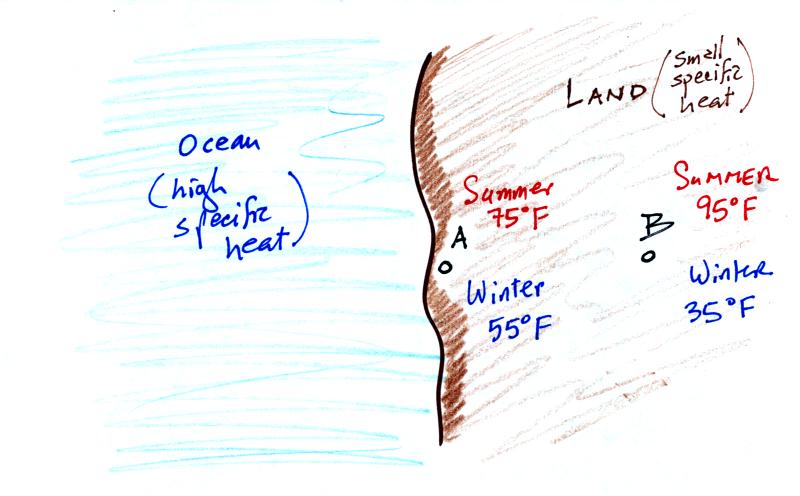 Ocean
(high
specific
heat)
LAND (small
specific
heat)
Summer
75°F
A
Winter
55°F
SUMMER
95°F
B
Winter
35°F